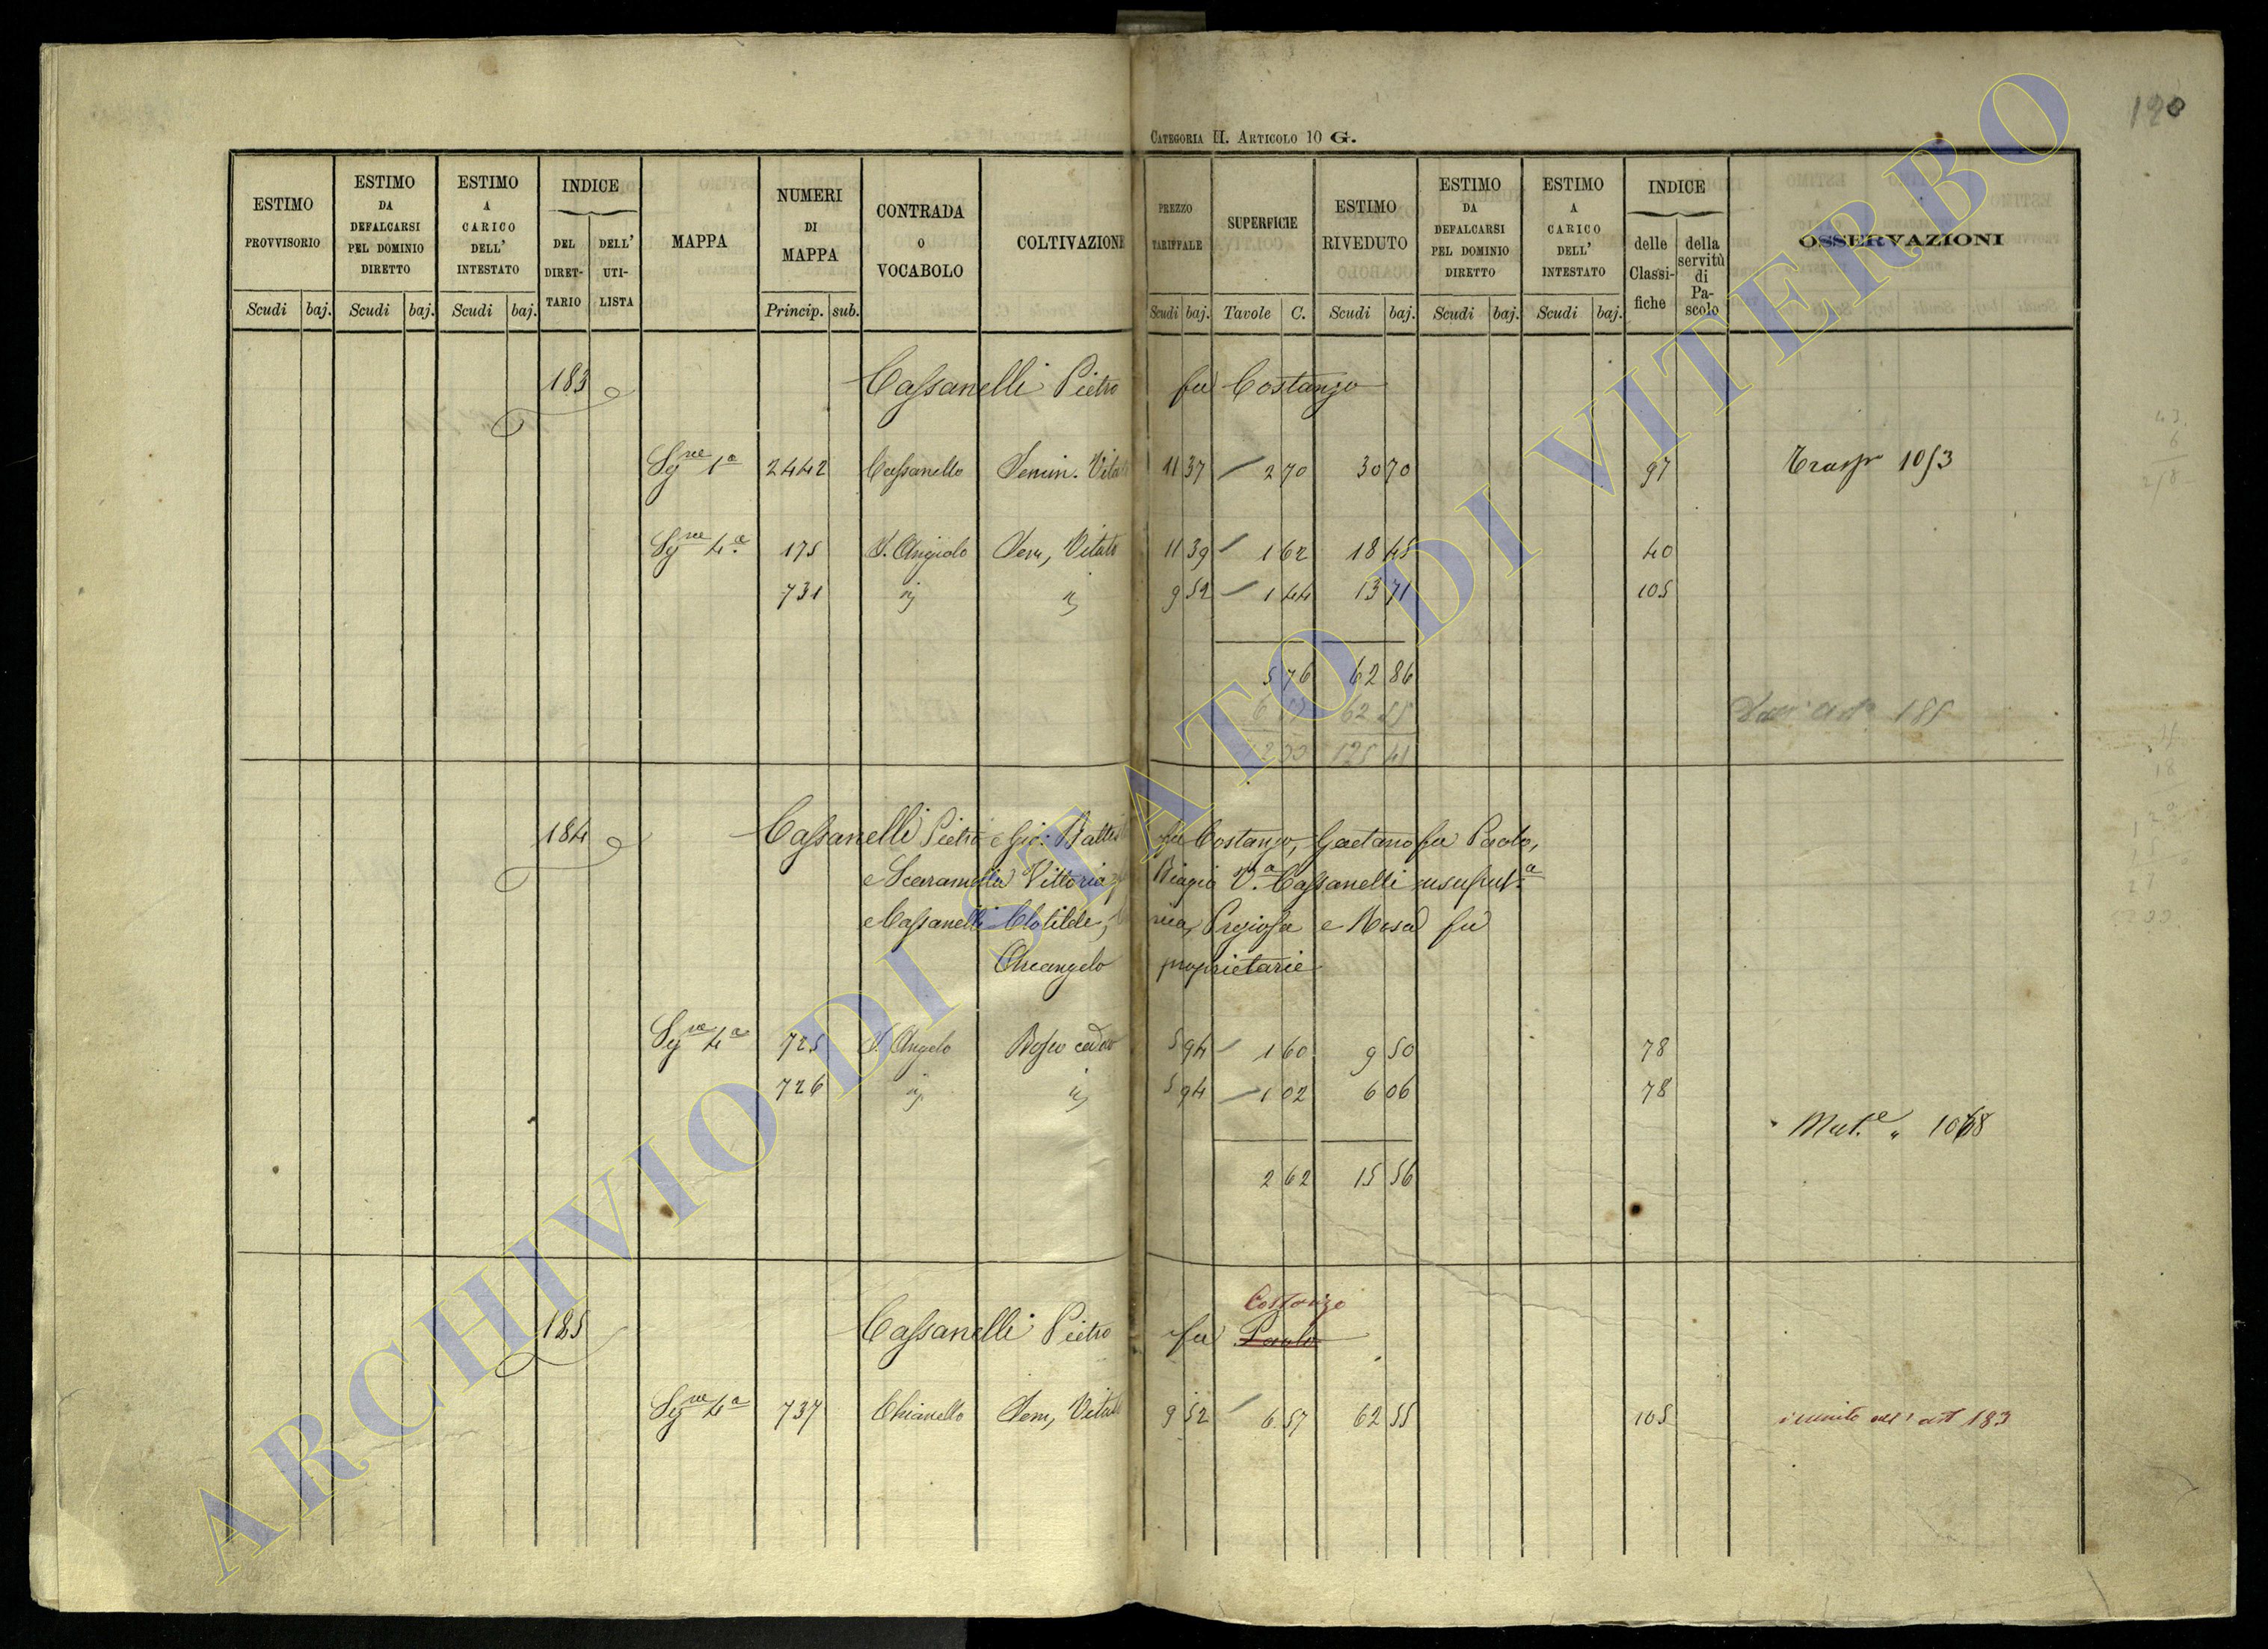 120
CATEGORIA II. ARTICOLO 10 G.
ESTIMO PROVVISORIO Scudi baj.
ESTIMO DA DEFALCARSI PEL DOMINIO DIRETTO Scudi baj.
ESTIMO A CARICO DELL' INTESTATO Scudi baj.
INDICE DEL DIRET-TARIO DELL' UTI-LISTA
MAPPA
NUMERI DI MAPPA Princip. sub.
CONTRADA O VOCABOLO
COLTIVAZIONE
PREZZO TARIFFALE Scudi baj.
SUPERFICIE Tavole C.
ESTIMO RIVEDUTO Scudi baj.
ESTIMO DA DEFALCARSI PEL DOMINIO DIRETTO Scudi baj.
ESTIMO A CARICO DELL' INTESTATO Scudi baj.
INDICE delle Classi-fiche della servitù di Pa-scolo
OSSERVAZIONI
183 Cassanelli Pietro fu Costanzo
Sez.ne 1a 2442 Cassanello Semin. Vitato 11 37 2 70 30 70 97 Trasp 1053
Sez.ne 4a 175 S. Angiolo Sem, Vitato 11 39 1 62 18 45 40
731 " " 9 52 1 44 13 71 105
5 76 62 86
6 57 62 55 185
12 33 125 41
184 Cassanelli Pietro e Gio: Battista fu Costanzo, Gaetano fu Paolo,
e Scaramella Vittoria Biagia V.a Cassanelli usufrut.a
e Cassanelli Clotilde, Pregiosa e Rosa fu
Arcangelo proprietarie
Sez.ne 4a 725 S. Angelo Bosco ceduo 5 94 1 60 9 50 78
726 " " 5 94 1 02 6 06 78
Mut.e " 1068
2 62 15 56
185 Cassanelli Pietro fu Paolo Costanzo
Sez.ne 4a 737 Chianello Sem, Vitato 9 52 6 57 62 55 105 riunito all'art 183
ARCHIVIO DI STATO DI VITERBO